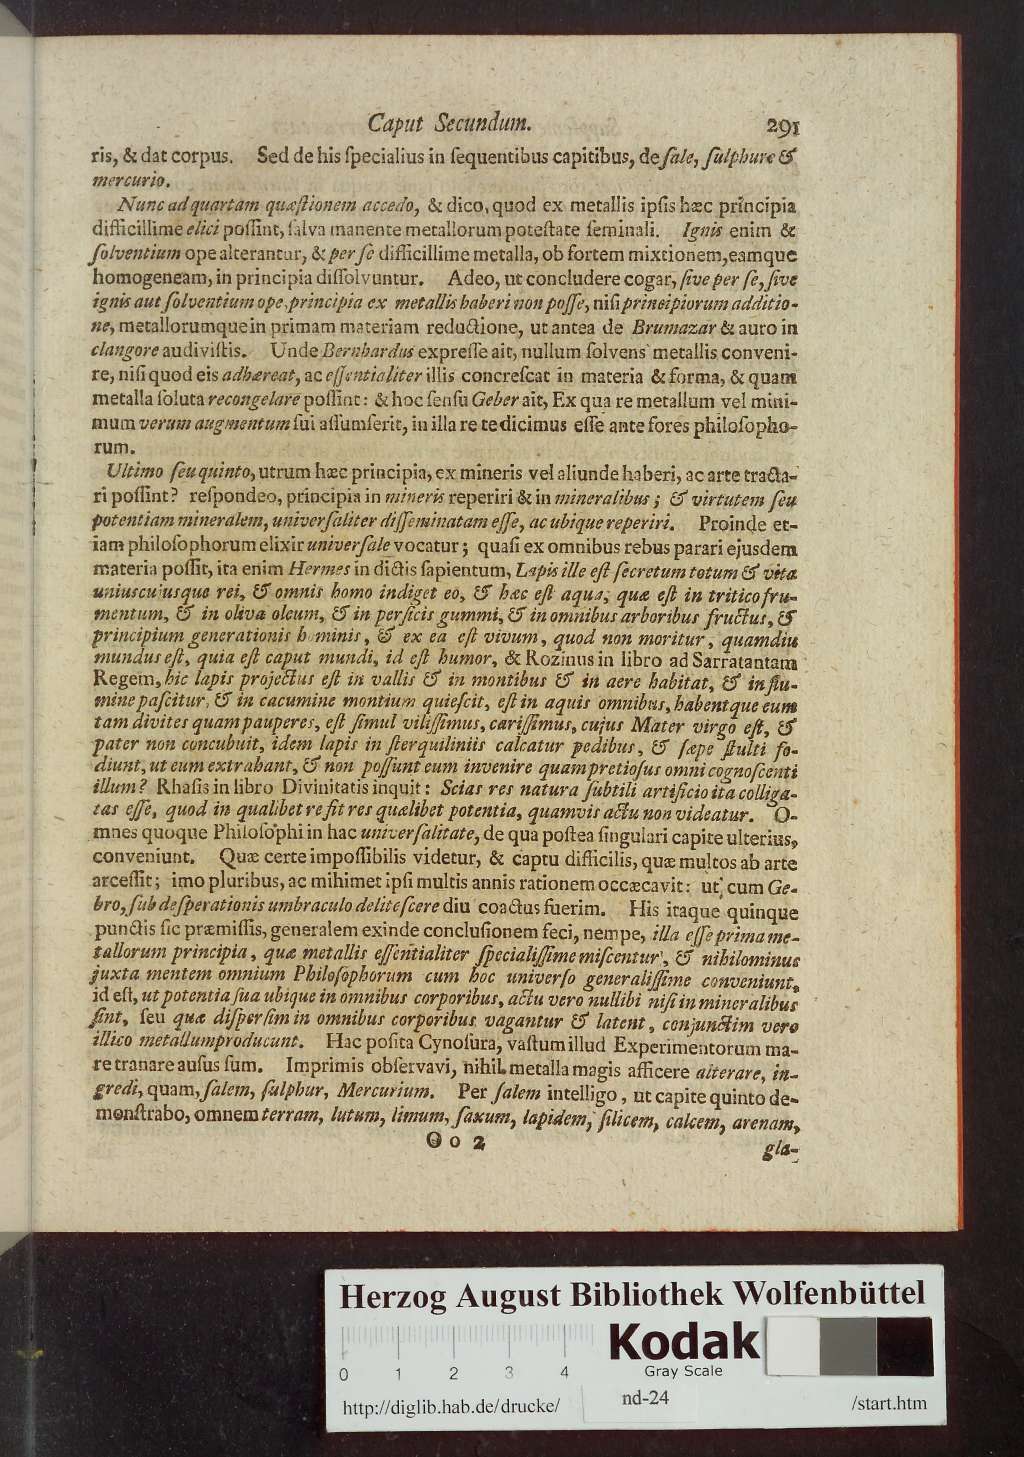 Caput Secundum. 291
ris, & dat corpus. Sed de his ſpecialius in ſequentibus capitibus, de ſale, ſulphure &
mercurio.
Nunc ad quartam quæſtionem accedo, & dico, quod ex metallis ipſis hæc principia
difficillime elici poſſint, ſalva manente metallorum poteſtate ſeminali. Ignis enim &
ſolventium ope alterantur, & per ſe difficillime metalla, ob fortem mixtionem, eamque
homogeneam, in principia diſſolvuntur. Adeo, ut concludere cogar, ſive per ſe, ſive
ignis aut ſolventium ope, principia ex metallis haberi non poſſe, niſi principiorum additio-
ne, metallorumque in primam materiam reductione, ut antea de Brumazar & auro in
clangore audiviſtis. Unde Bernhardus expreſſe ait, nullum ſolvens metallis conveni-
re, niſi quod eis adhæreat, ac eſſentialiter illis concreſcat in materia & forma, & quam
metalla ſoluta recongelare poſſint: & hoc ſenſu Geber ait, Ex qua re metallum vel mini-
mum verum augmentum ſui aſſumſerit, in illa re te dicimus eſſe ante fores philoſopho-
rum.
Ultimo ſeu quinto, utrum hæc principia, ex mineris vel aliunde haberi, ac arte tracta-
ri poſſint? reſpondeo, principia in mineris reperiri & in mineralibus; & virtutem ſeu
potentiam mineralem, univerſaliter diſſeminatam eſſe, ac ubique reperiri. Proinde et-
iam philoſophorum elixir univerſale vocatur; quaſi ex omnibus rebus parari ejusdem
materia poſſit, ita enim Hermes in dictis ſapientum, Lapis ille eſt ſecretum totum & vita
uniuscujusque rei, & omnis homo indiget eo, & hæc eſt aqua, quæ eſt in tritico fru-
mentum, & in oliva oleum, & in perſicis gummi, & in omnibus arboribus fructus, &
principium generationis hominis, & ex ea eſt vivum, quod non moritur, quamdiu
mundus eſt, quia eſt caput mundi, id eſt humor, & Rozinus in libro ad Sarratantam
Regem, hic lapis projectus eſt in vallis & in montibus & in aere habitat, & in flu-
mine paſcitur, & in cacumine montium quieſcit, eſt in aquis omnibus, habentque eum
tam divites quam pauperes, eſt ſimul viliſſimus, cariſſimus, cujus Mater virgo eſt, &
pater non concubuit, idem lapis in ſterquiliniis calcatur pedibus, & ſæpe ſtulti fo-
diunt, ut eum extrahant, & non poſſunt eum invenire quam pretioſus omni cognoſcenti
illum? Rhaſis in libro Divinitatis inquit: Scias res natura ſubtili artificio ita colliga-
tas eſſe, quod in qualibet re ſit res quælibet potentia, quamvis actu non videatur. O-
mnes quoque Philoſophi in hac univerſalitate, de qua poſtea ſingulari capite ulterius,
conveniunt. Quæ certe impoſſibilis videtur, & captu difficilis, quæ multos ab arte
arceſſit; imo pluribus, ac mihimet ipſi multis annis rationem occæcavit: ut, cum Ge-
bro, ſub deſperationis umbraculo deliteſcere diu coactus fuerim. His itaque quinque
punctis ſic præmiſſis, generalem exinde concluſionem feci, nempe, illa eſſe prima me-
tallorum principia, quæ metallis eſſentialiter ſpecialiſſime miſcentur, & nihilominus
juxta mentem omnium Philoſophorum cum hoc univerſo generaliſſime conveniunt,
id eſt, ut potentia ſua ubique in omnibus corporibus, actu vero nullibi niſi in mineralibus
ſint, ſeu quæ diſperſim in omnibus corporibus vagantur & latent, conjunctim vero
illico metallum producunt. Hac poſita Cynoſura, vaſtum illud Experimentorum ma-
re tranare auſus ſum. Imprimis obſervavi, nihil metalla magis afficere alterare, in-
gredi, quam, ſalem, ſulphur, Mercurium. Per ſalem intelligo, ut capite quinto de-
monſtrabo, omnem terram, lutum, limum, ſaxum, lapidem, ſilicem, calcem, arenam,
Oo 2 gla-
Herzog August Bibliothek Wolfenbüttel
Kodak
Gray Scale
0 1 2 3 4
http://diglib.hab.de/drucke/ nd-24 /start.htm